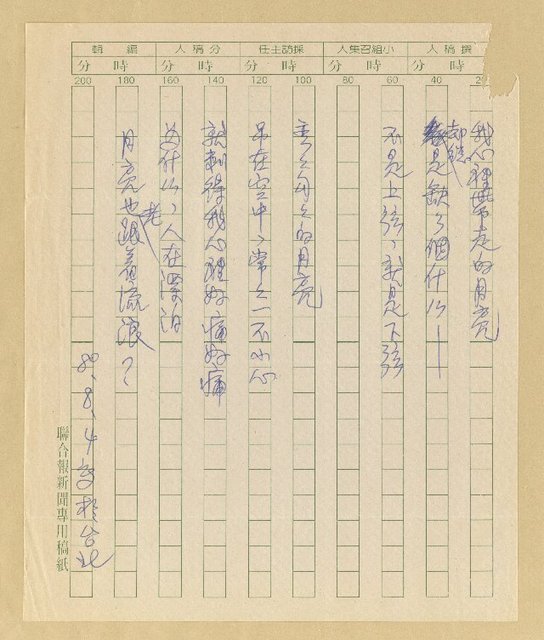 撰稿人 小組召集人 採訪主任 分稿人 編輯
時 分 時 分 時 分 時 分 時 分
20 40 60 80 100 120 140 160 180 200
我心裡帶走的月亮
卻總是缺了個什么——
不是上弦、就是下弦
彎彎勾勾的月亮
吊在空中、常常一不小心
就刺得我心裡好痛好痛
為什么、人在漂泊
月亮也老跟着流浪？
80、8、4寫於台北
聯合報新聞專用稿紙